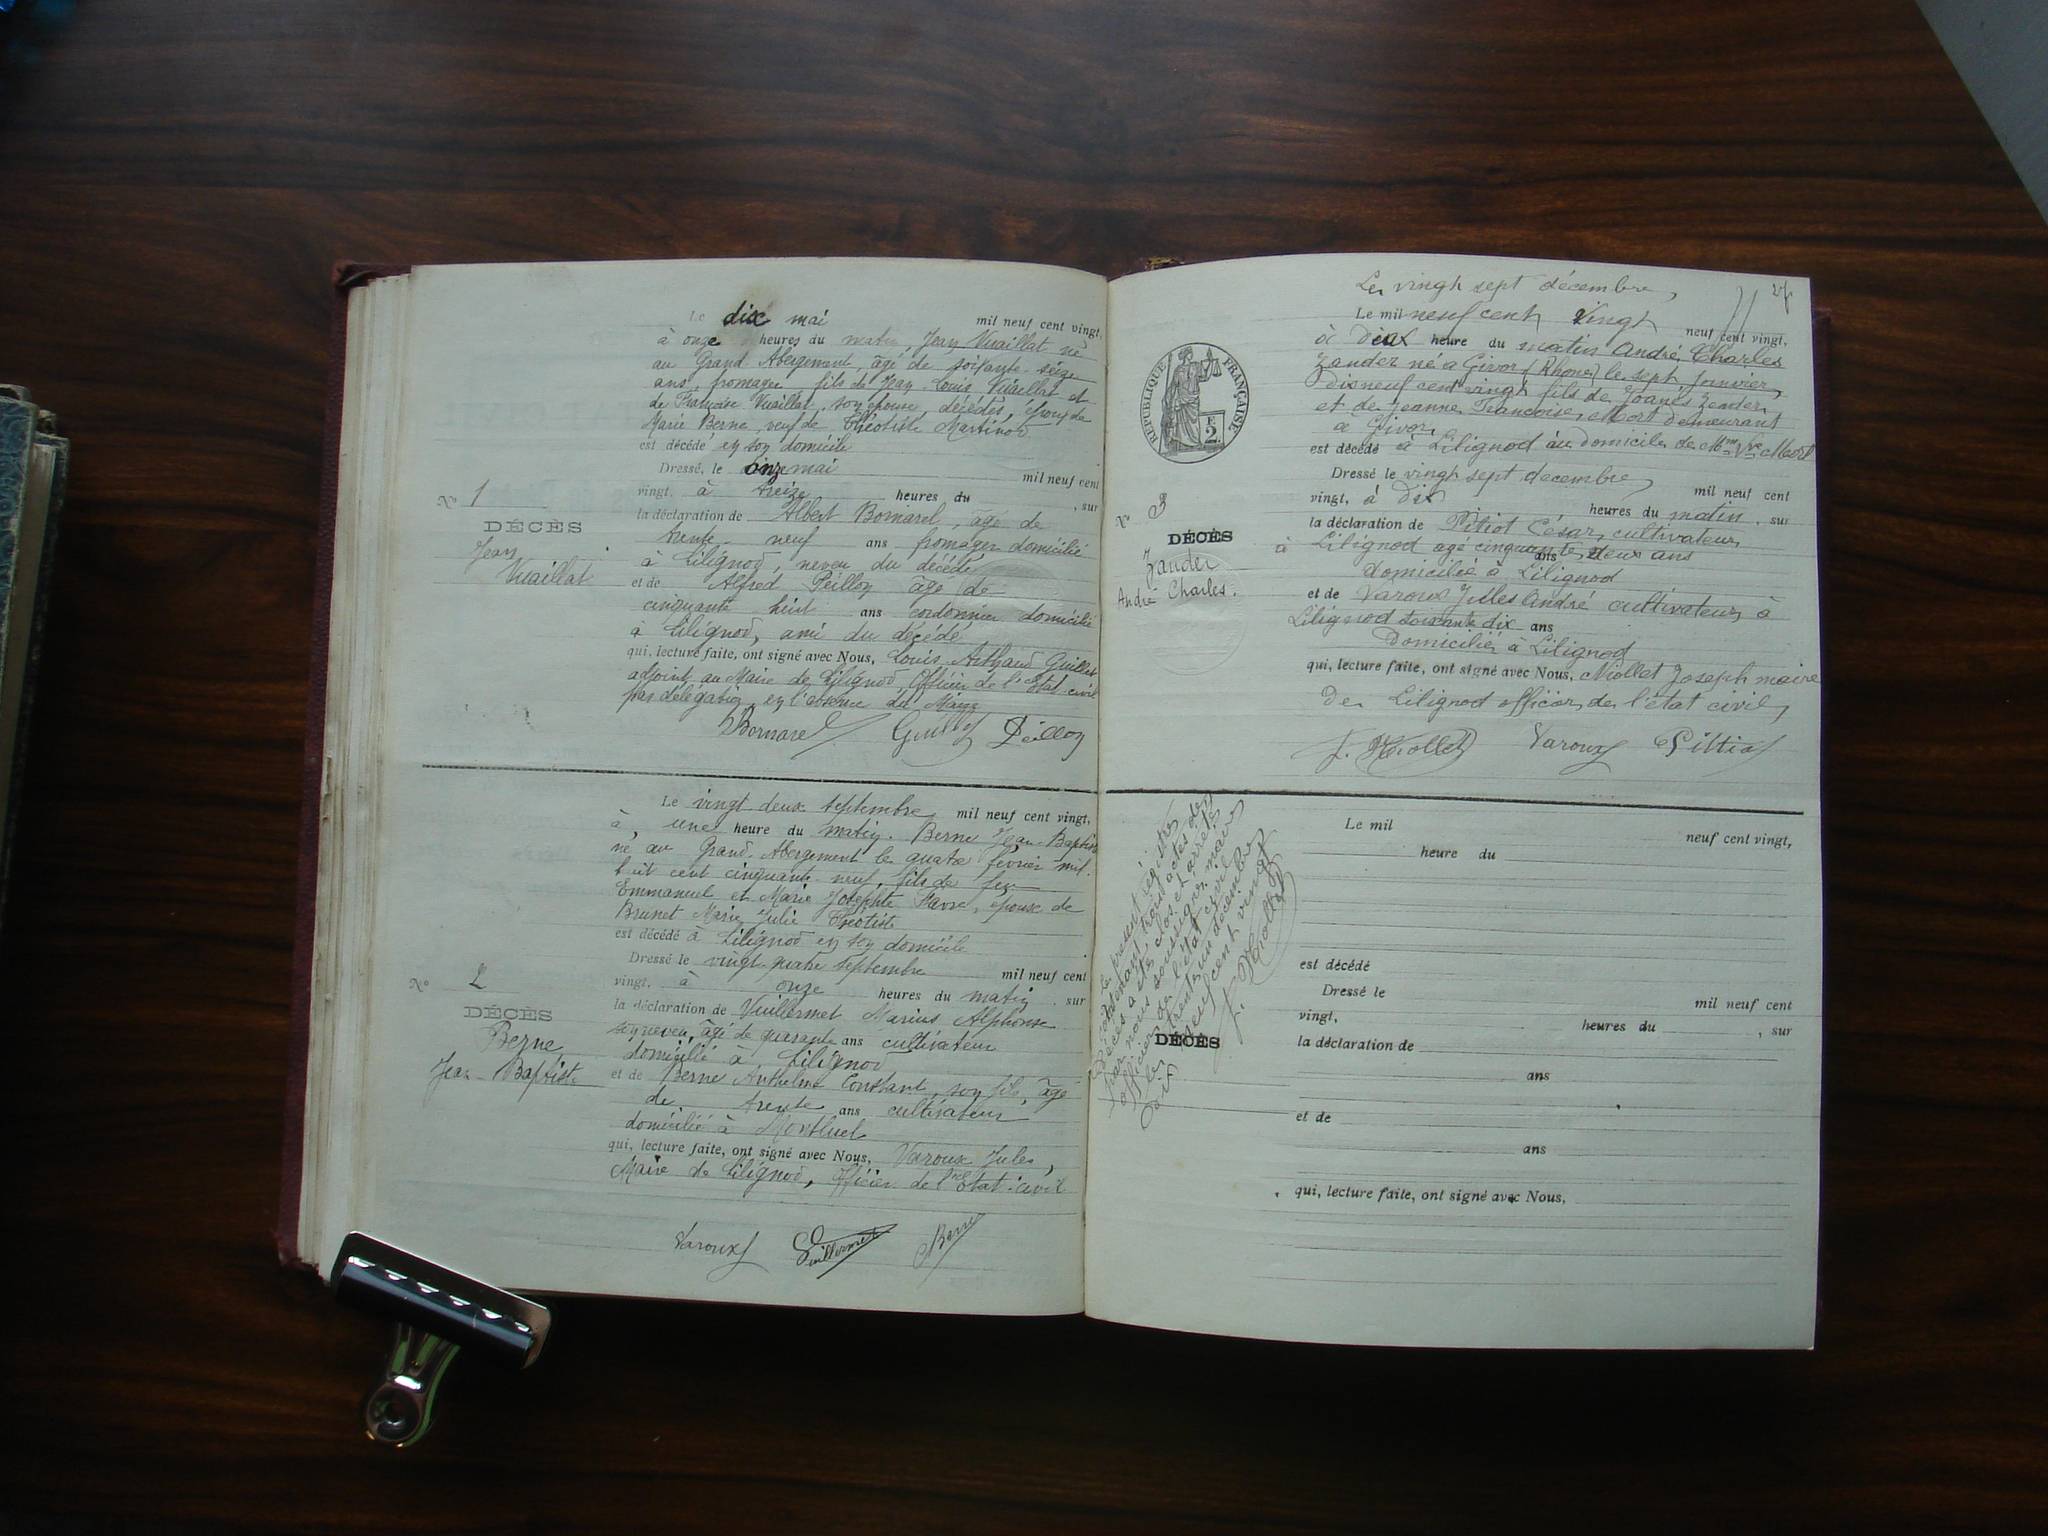 Le dix mai mil neuf cent vingt,
à onze heures du matin, Jean Vuaillat né
au Grand Abergement, âgé de soixante-seize
ans, fromager, fils de Jean-Louis Vuaillat et
de Françoise Vuaillat, son épouse, décédés, époux de
Marie Berne, veuf de Théotiste Martinod
est décédé en son domicile
Dressé, le onze mai mil neuf cent
vingt, à treize heures du , sur
la déclaration de Albert Bornarel, âgé de
trente-neuf ans fromager domicilié
à Lilignod, neveu du décédé
et de Alfred Peillon âgé de
cinquante huit ans cordonnier domicilié
à Lilignod, ami du décédé
qui, lecture faite, ont signé avec Nous, Louis Arthaud Guillet
adjoint au Maire de Lilignod, Officier de l'Etat-civil
par délégation en l'absence du Maire
Bornarel Guillet Peillon
N° 1
DÉCÈS
Jean
Vuaillat
Le vingt deux septembre mil neuf cent vingt,
à une heure du matin. Berne Jean-Baptiste
né au Grand-Abergement le quatre février mil
huit cent cinquante-neuf, fils de feu
Emmanuel et Marie Josephte Favre, époux de
Brunet Marie Julie Théotiste
est décédé à Lilignod en son domicile
Dressé le vingt-quatre septembre mil neuf cent
vingt, à onze heures du matin, sur
la déclaration de Vuillermet Marius Alphonse
son neveu, âgé de quarante ans cultivateur
domicilié à Lilignod
et de Berne Anthelme Constant, son fils, âgé
de trente ans cultivateur
domicilié à Montluel
qui, lecture faite, ont signé avec Nous, Varoux Jules,
Maire de Lilignod, Officier de l'Etat-civil
Varoux Vuillermet Berne
N° 2
DÉCÈS
Berne
Jean-Baptiste
27
Le vingt sept décembre,
Le mil neuf cent vingt neuf cent vingt,
à deux heure du matin André Charles
Zander né a Givor (Rhone) le sept Janvier
dix neuf cent vingt fils de Joanès Zander
et de Jeanne Francoise Mort demeurant
a Givor
est décédé à Lilignod au domicile de Mme Vve Mort
Dressé le vingt sept decembre mil neuf cent
vingt, à dix heures du matin, sur
la déclaration de Pitiot César, cultivateur
à Lilignod agé cinquante deux ans
domicilié à Lilignod
et de Varoux Jules André cultivateur à
Lilignod soixante dix ans
Domicilié à Lilignod
qui, lecture faite, ont signé avec Nous, Niollet Joseph maire
de Lilignod officier de l'état civil
J. Niollet Varoux Pittiot
RÉPUBLIQUE FRANÇAISE
2 F.
N° 3
DÉCÈS
Zander
André Charles.
Le mil neuf cent vingt,
heure du
est décédé
Dressé le mil neuf cent
vingt, heures du , sur
la déclaration de
ans
et de
ans
qui, lecture faite, ont signé avec Nous,
DÉCÈS
Le présent registre
contenant trois actes de
Décès a été clos et arrêté
par nous soussigné maire
officier de l'état civil
le trente un décembre
dix neuf cent vingt
J. Niollet